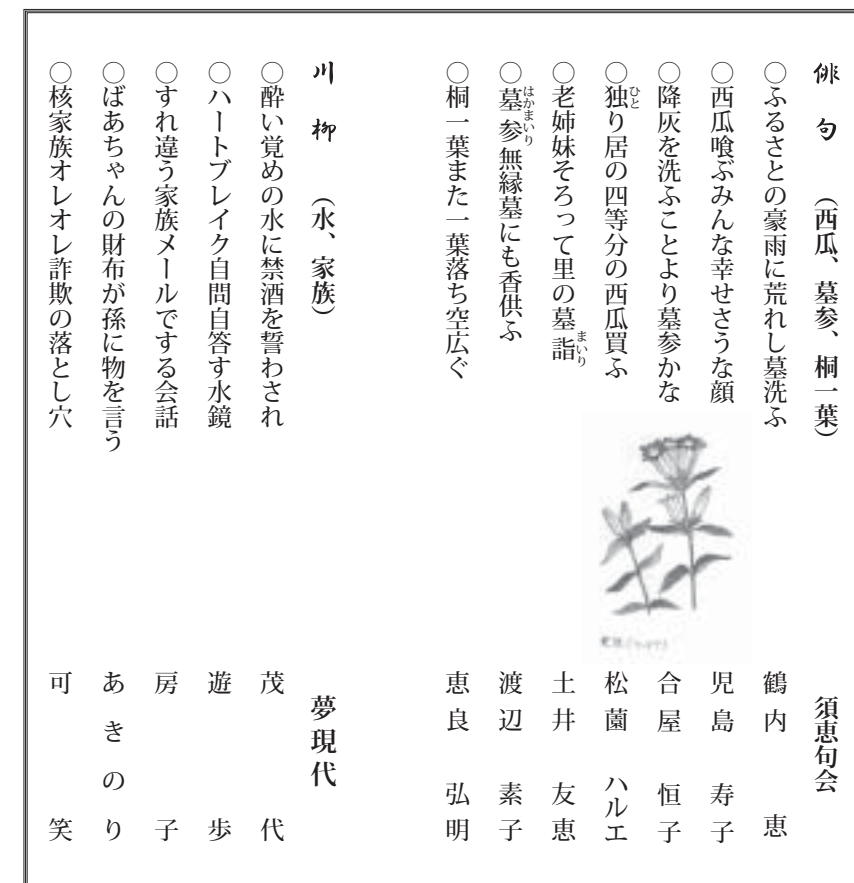 俳句 (西瓜、墓参、桐一葉) 須恵句会
○ふるさとの豪雨に荒れし墓洗ふ 鶴内 恵
○西瓜喰ぶみんな幸せさうな顔 児島 寿子
○降灰を洗ふことより墓参かな 合屋 恒子
○独り居の四等分の西瓜買ふ 松薗 ハルエ
○老姉妹そろって里の墓詣 土井 友恵
○墓参無縁墓にも香供ふ 渡辺 素子
○桐一葉また一葉落ち空広ぐ 恵良 弘明
川柳 (水、家族) 夢現代
○酔い覚めの水に禁酒を誓わされ 茂代
○ハートブレイク自問自答す水鏡 遊歩
○すれ違う家族メールでする会話 房子
○ばあちゃんの財布が孫に物を言う あきのり
○核家族オレオレ詐欺の落とし穴 可笑